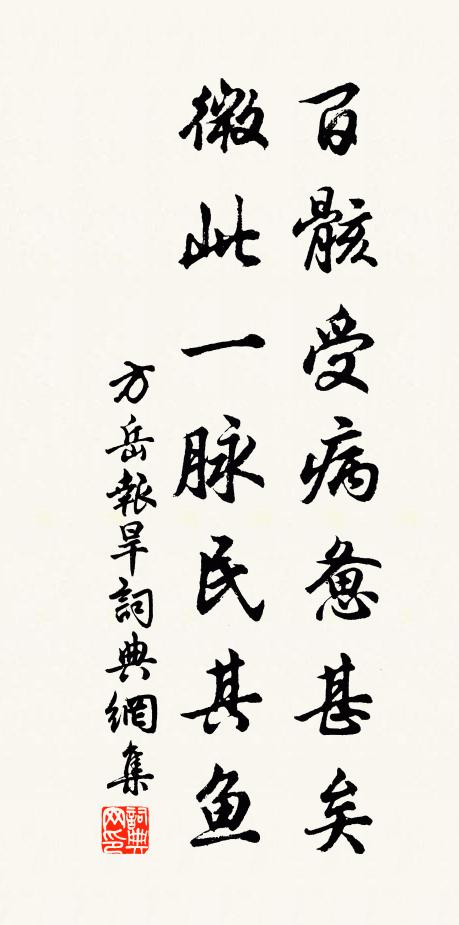 百骸受病惫甚矣
微此一脉民其鱼
方岳報旱詞典網集
詞典
网印